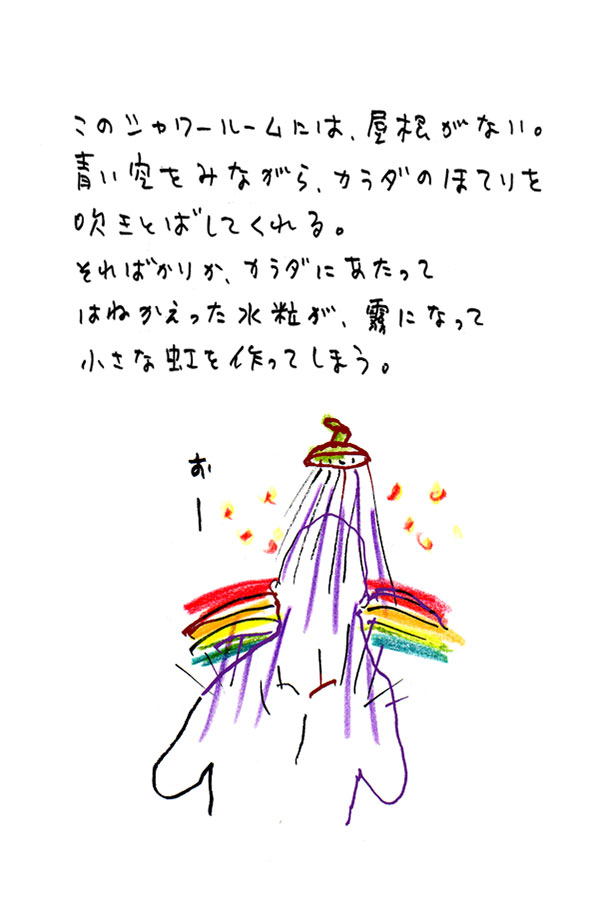 このシャワールームには、屋根がない。
青い空をみながら、カラダのほてりを
吹きとばしてくれる。
そればかりか、カラダにあたって
はねかえった水粒が、霧になって
小さな虹を作ってしまう。
おー